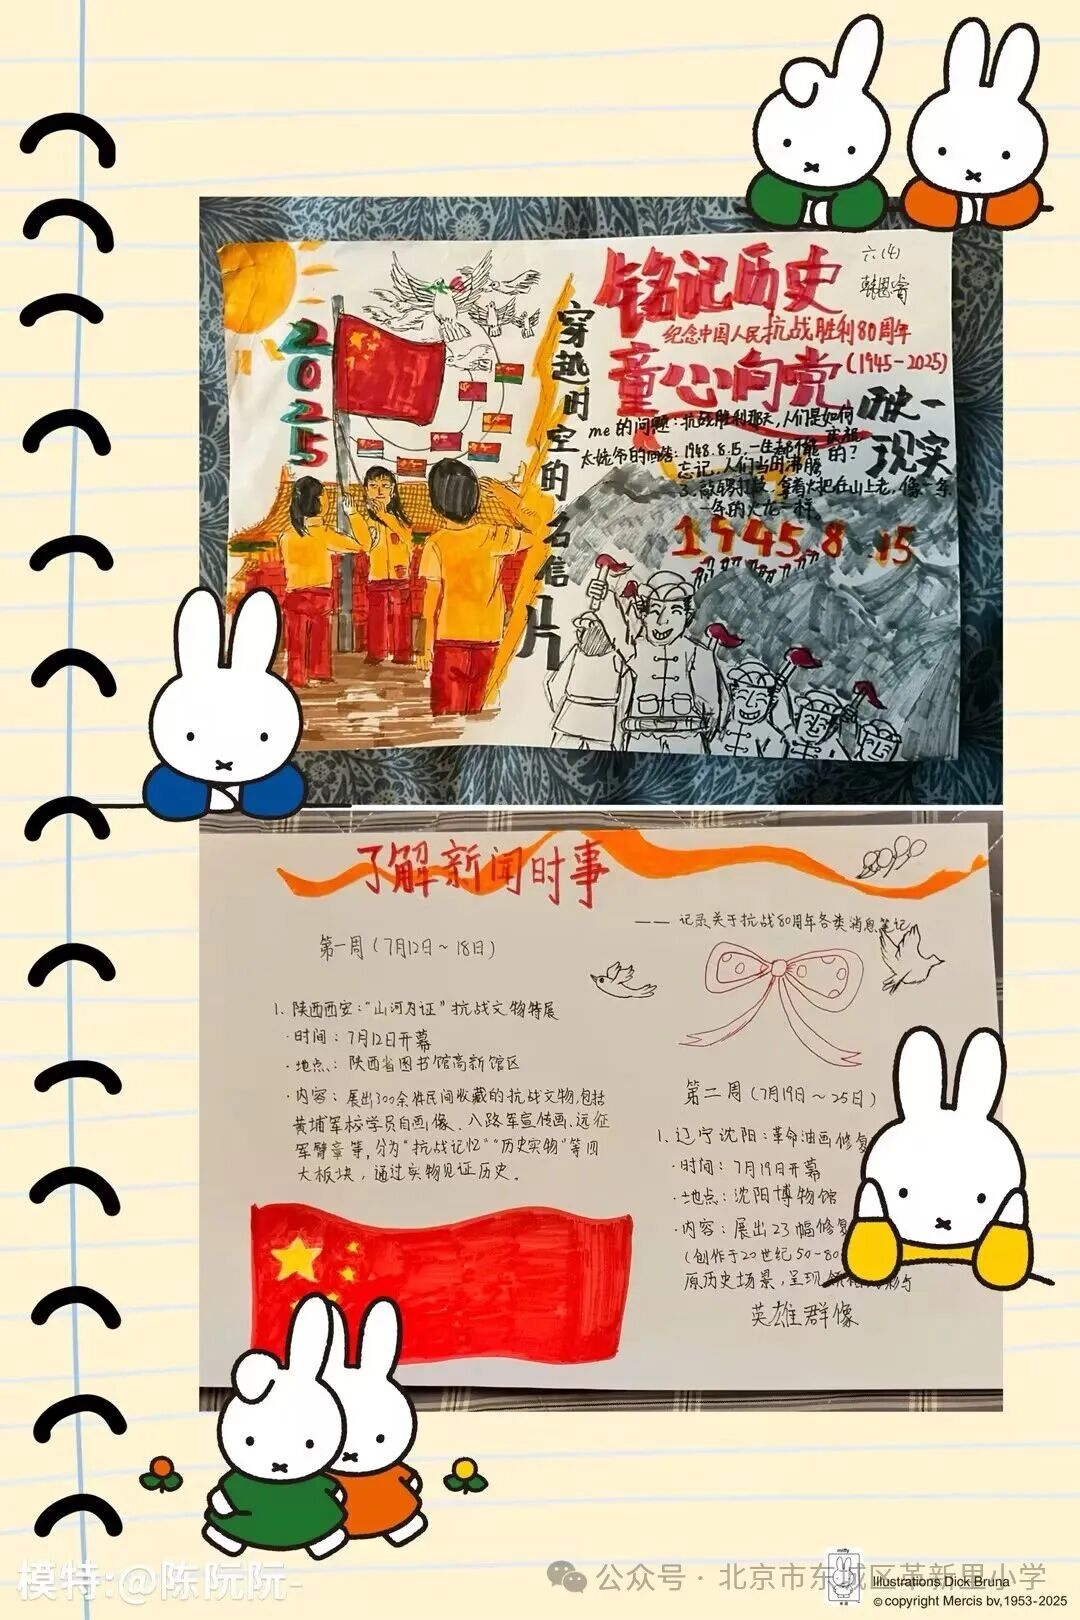 铭记历史
六(4)
纪念中国人民抗战胜利80周年
童心向党
(1945-2025)
2025
穿越时空的名信片
历史一
现实
me的问题:抗战胜利那天,人们是如何
庆祝的?
太姥爷的回答:1948.8.15,一生都不能
忘记,人们当时沸腾
了,敲锣打鼓,拿着火把在山上走,像一条
一条的火龙一样。
1945.8.15
了解新闻时事
——记录关于抗战80周年各类消息笔记
第一周(7月12日~18日)
1.陕西西安:“山河为证”抗战文物特展
·时间:7月12日开幕
·地点:陕西省图书馆高新馆区
·内容:展出300余件民间收藏的抗战文物,包括
黄埔军校学员自画像、八路军宣传画、远征
军臂章等,分为“抗战记忆”“历史实物”等四
大板块,通过实物见证历史。
第二周(7月19日~25日)
1.辽宁沈阳:革命油画修复
·时间:7月19日开幕
·地点:沈阳博物馆
·内容:展出23幅修复
(创作于20世纪50-80
原历史场景,呈现
英雄群像
模特:@陈阮阮-
公众号·北京市东城区革新里小学
miffy
Illustrations Dick Bruna
© copyright Mercis bv, 1953-2025